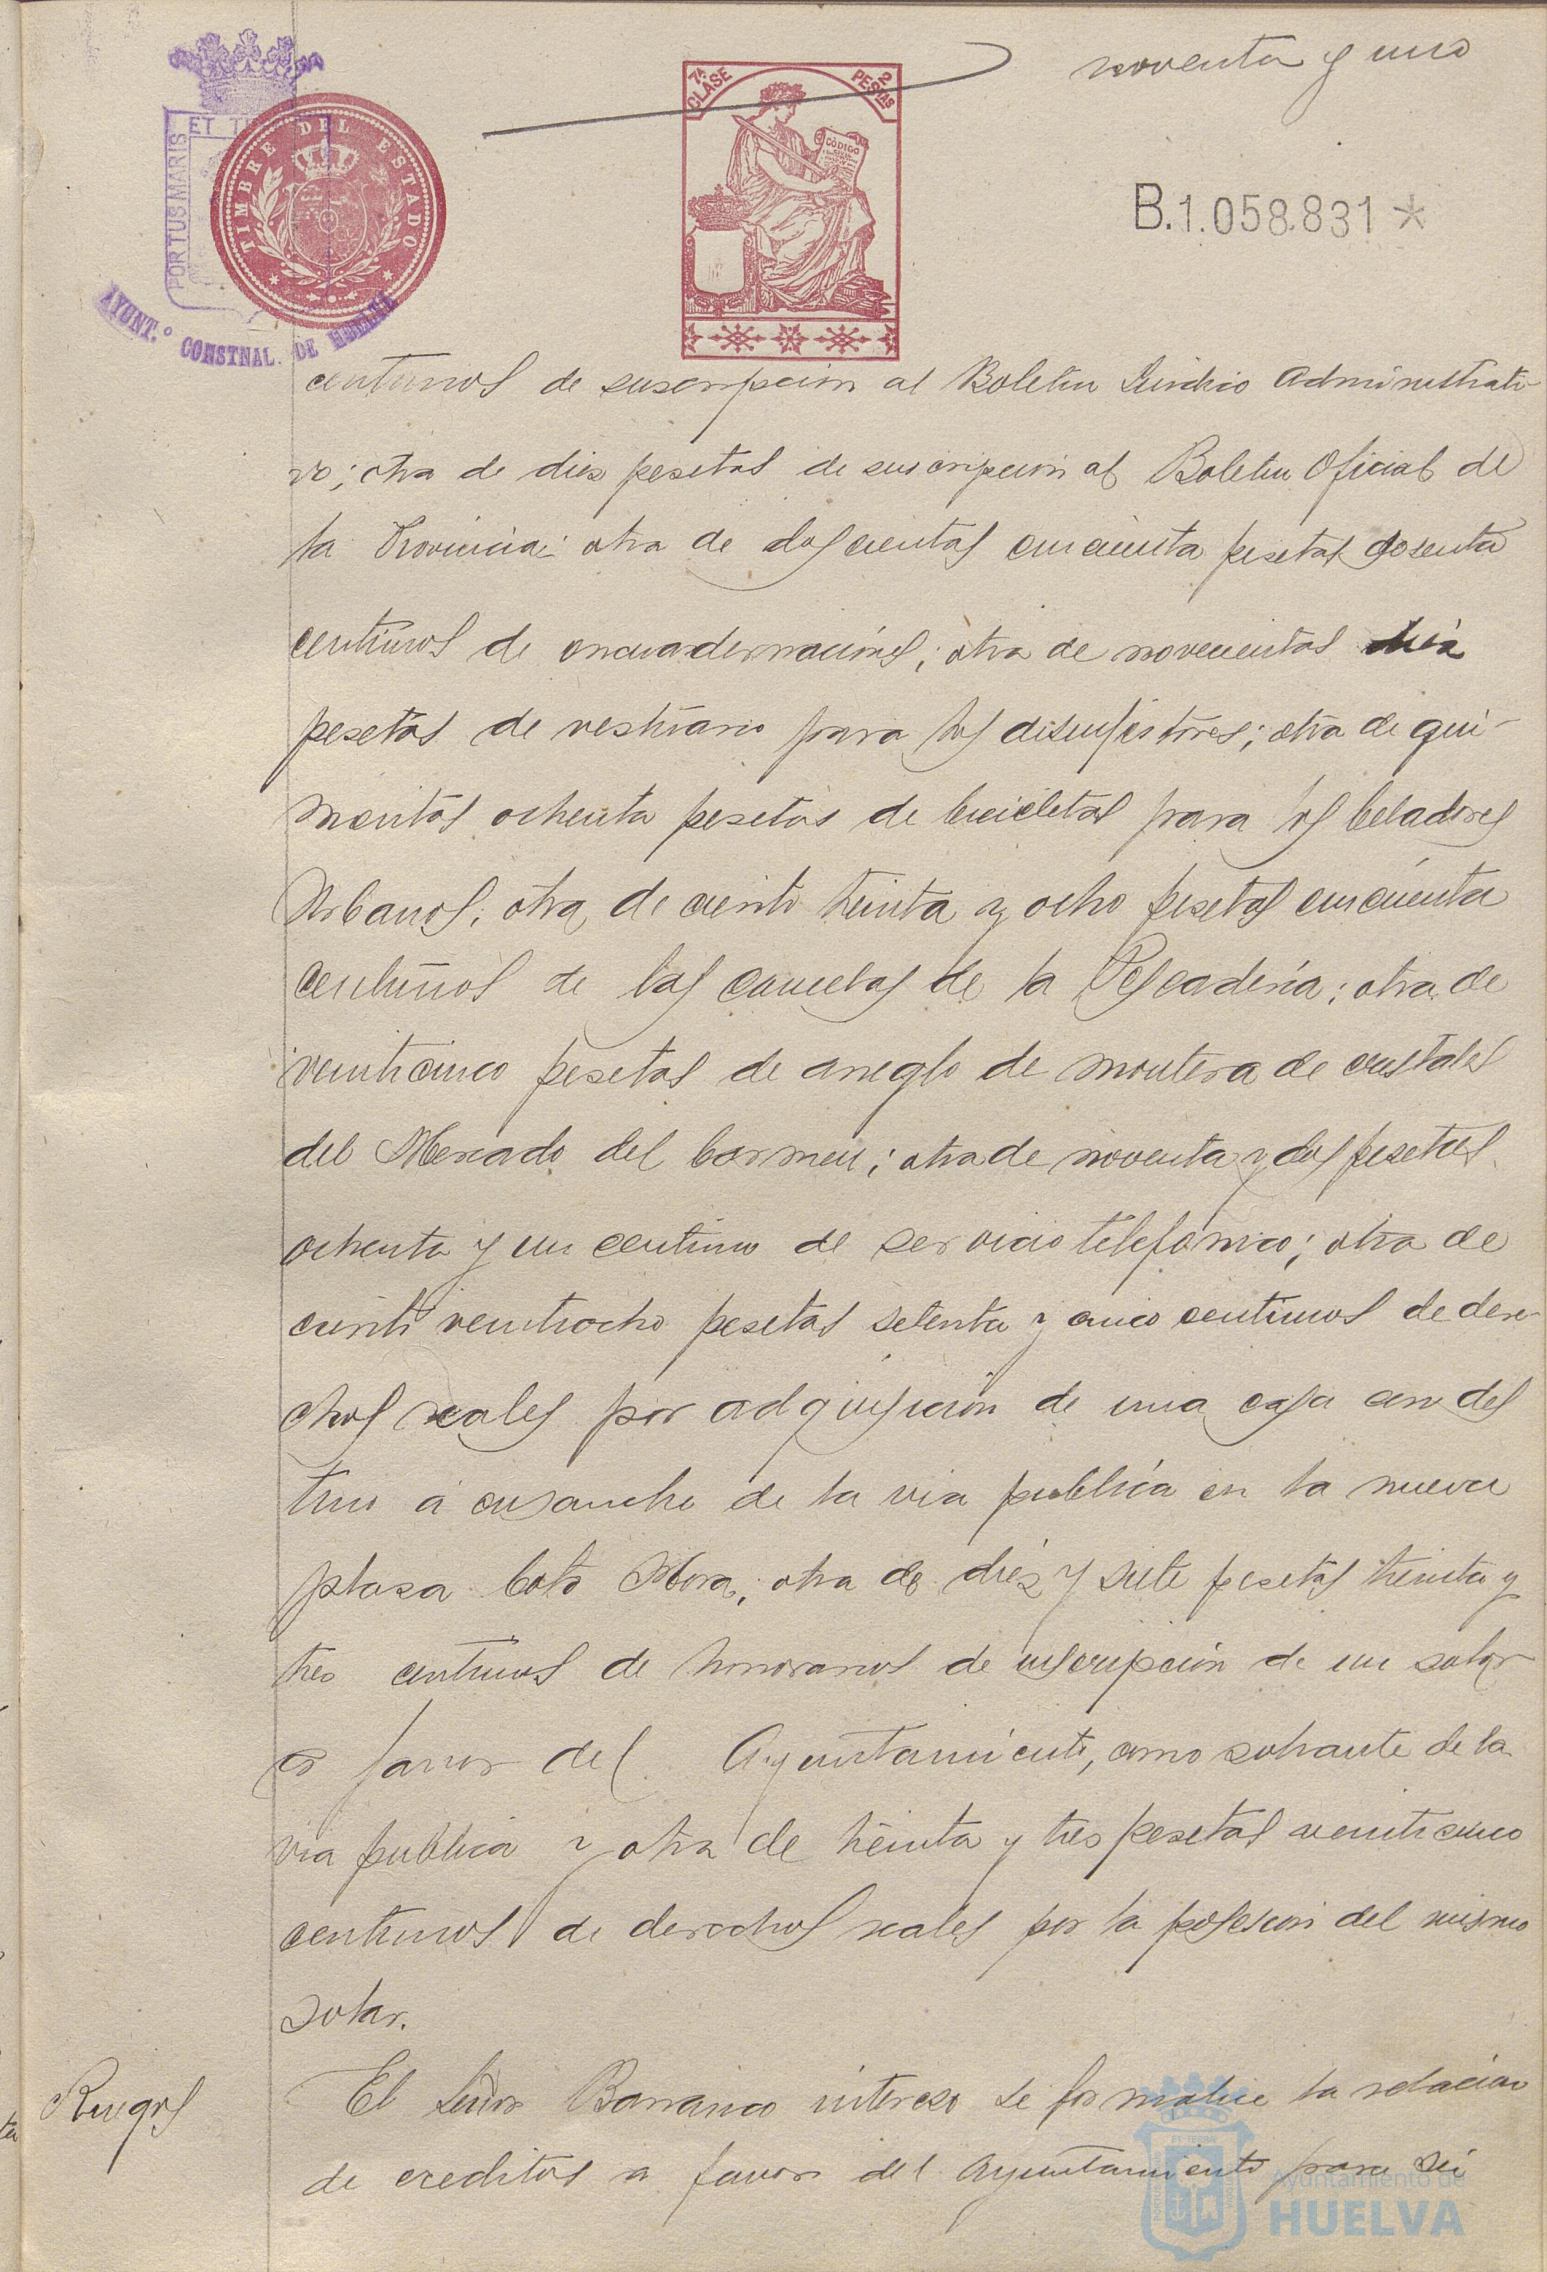 noventa y uno
7ª CLASE
2 PESTAS
CÓDIGO
B.1.058.831*
PORTUS MARIS ET
TIMBRE DEL ESTADO
AYUNT.º CONSTNAL. DE HUELVA
centimos de suscripcion al Boletin Juridico Administrati-
vo; otra de diez pesetas de suscripcion al Boletin Oficial de
la Provincia; otra de doscientas cincuenta pesetas sesenta
centimos de encuadernaciónes; otra de novecientas diéz
pesetas de vestuario para los disenfectores; otra de qui-
nientas ochenta pesetas de bicicletas para los Celadores
Urbanos; otra de ciento treinta y ocho pesetas cincuenta
centimos de las casuetas de la Pescaderia; otra de
veinticinco pesetas de arreglo de montera de cristales
del Mercado del Carmen; otra de noventa y dos pesetas
ochenta y un centimo de servicio telefonico; otra de
ciento veintiocho pesetas setenta y cinco centimos de dere-
chos reales por adquisicion de una casa con des
tino á ensanche de la via publica en la nueva
plaza Coto Mora; otra de diéz y siete pesetas treinta y
tres centimos de honorarios de inscripción de un solar
a favor del Ayuntamiento, como sobrante de la
via publica y otra de treinta y tres pesetas veinticinco
centimos de derechos reales por la posesion del mismo
solar.
Ruegos
El Señor Barranco intereso se formalice la relacion
de creditos a favor del Ayuntamiento para su
Ayuntamiento de
HUELVA